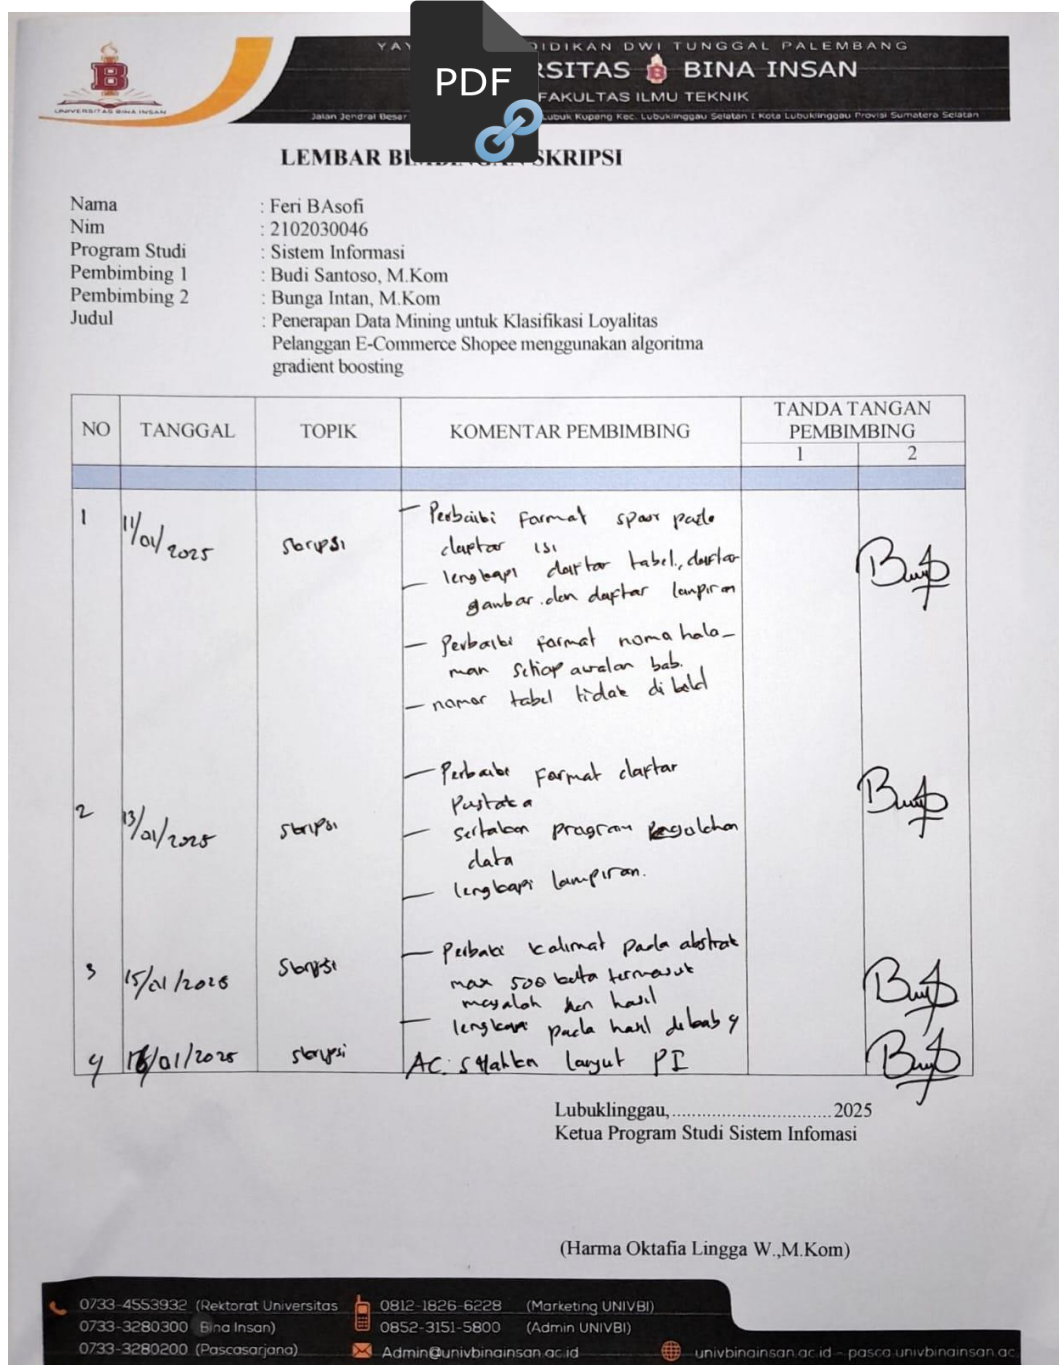 YAY DIDIKAN DWI TUNGGAL PALEMBANG
RSITAS BINA INSAN
FAKULTAS ILMU TEKNIK
Jalan Jendral Besar Lubuk Kupang Kec. Lubuklinggau Selatan I Kota Lubuklinggau Provisi Sumatera Selatan
B
UNIVERSITAS BINA INSAN
PDF
LEMBAR BIMBINGAN SKRIPSI
Nama : Feri BAsofi
Nim : 2102030046
Program Studi : Sistem Informasi
Pembimbing 1 : Budi Santoso, M.Kom
Pembimbing 2 : Bunga Intan, M.Kom
Judul : Penerapan Data Mining untuk Klasifikasi Loyalitas
Pelanggan E-Commerce Shopee menggunakan algoritma
gradient boosting
NO TANGGAL TOPIK KOMENTAR PEMBIMBING TANDA TANGAN PEMBIMBING
1 2
1 11/01/2025 skripsi – Perbaiki format spasi pada
daftar isi
– lengkapi daftar tabel, daftar
gambar dan daftar lampiran
– Perbaiki format nomo hala–
man setiap awalan bab.
– nomor tabel tidak di bold
2 13/01/2025 skripsi – Perbaiki format daftar
Pustaka
– sertakan program
data
– lengkapi lampiran.
3 15/01/2025 skripsi – Perbaiki kalimat pada abstrak
max 500 kata termasuk
masalah dan hasil
– lengkapi pada hasil di bab 4
4 16/01/2025 skripsi ACC. silahkan lanjut PI
Lubuklinggau,..............................2025
Ketua Program Studi Sistem Infomasi
(Harma Oktafia Lingga W.,M.Kom)
0733-4553932 (Rektorat Universitas
0733-3280300 Bina Insan)
0733-3280200 (Pascasarjana)
0812-1826-6228 (Marketing UNIVBI)
0852-3151-5800 (Admin UNIVBI)
Admin@univbinainsan.ac.id
univbinainsan.ac.id - pasca.univbinainsan.ac